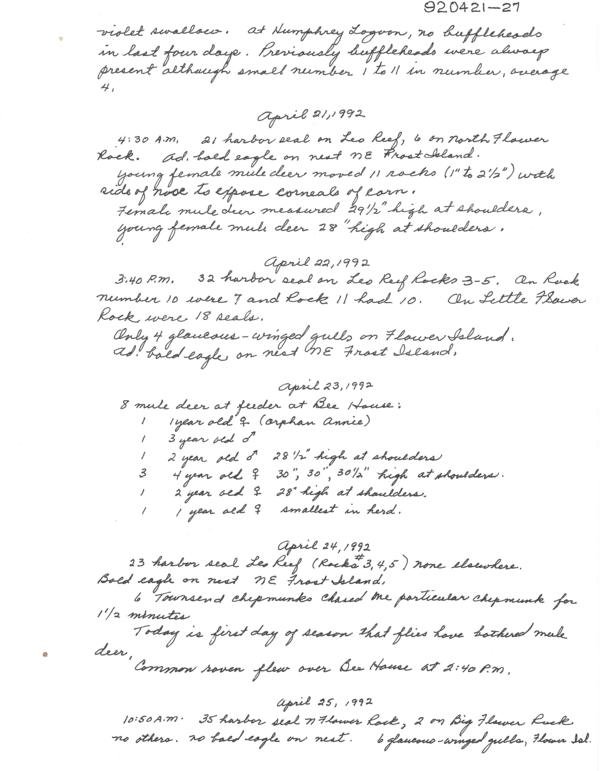 920421-27
violet swallow. At Humphrey Lagoon, no buffleheads
in last four days. Previously buffleheads were always
present although small number 1 to 11 in number, average
4.
April 21, 1992
4:30 A.M. 21 harbor seal on Leo Reef, 6 on North Flower
Rock. Ad. bald eagle on nest NE Frost Island.
Young female mule deer moved 11 rocks (1" to 2½") with
side of nose to expose corneals of corn.
Female mule deer measured 29½" high at shoulders,
young female mule deer 28" high at shoulders.
April 22, 1992
3:40 P.M. 32 harbor seal on Leo Reef Rocks 3-5. On Rock
number 10 were 7 and Rock 11 had 10. On Little Flower
Rock were 18 seals.
Only 4 glaucous-winged gulls on Flower Island.
Ad. bald eagle on nest NE Frost Island.
April 23, 1992
8 mule deer at feeder at Bee House:
1 1 year old ♀ (Orphan Annie)
1 3 year old ♂
1 2 year old ♂ 28½" high at shoulders
3 4 year old ♀ 30", 30", 30½" high at shoulders.
1 2 year old ♀ 28" high at shoulders.
1 1 year old ♀ smallest in herd.
April 24, 1992
23 harbor seal Leo Reef (Rocks #3,4,5) none elsewhere.
Bald eagle on nest NE Frost Island.
6 Townsend chipmunks chased one particular chipmunk for
1½ minutes
Today is first day of season that flies have bothered mule
deer.
Common raven flew over Bee House at 2:40 P.M.
April 25, 1992
10:50 A.M. 35 harbor seal N Flower Rock, 2 on Big Flower Rock
no others. No bald eagle on nest. 6 glaucous-winged gulls, Flower Isl.